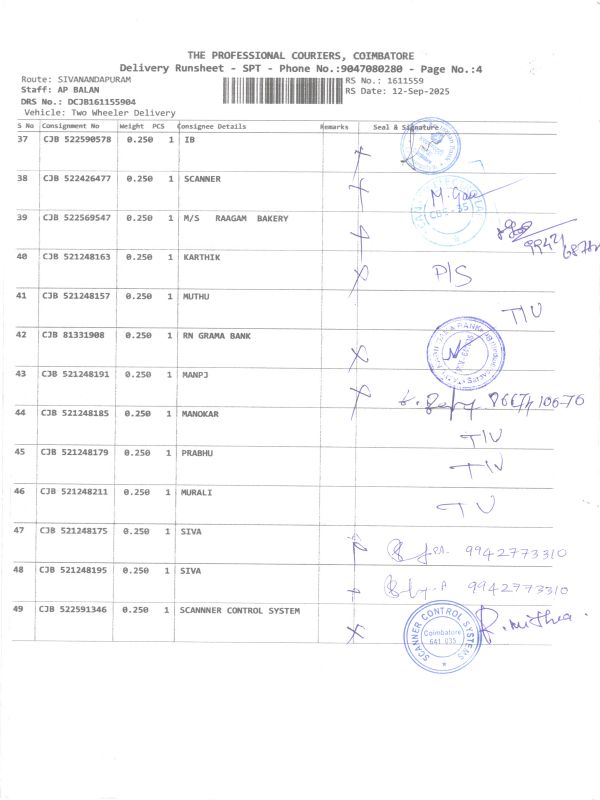 THE PROFESSIONAL COURIERS, COIMBATORE
Delivery Runsheet - SPT - Phone No.:9047080280 - Page No.:4
Route: SIVANANDAPURAM RS No.: 1611559
Staff: AP BALAN RS Date: 12-Sep-2025
DRS No.: DCJB161155904
Vehicle: Two Wheeler Delivery
S No Consignment No Weight PCS Consignee Details Remarks Seal & Signature
37 CJB 522590578 0.250 1 IB
38 CJB 522426477 0.250 1 SCANNER
39 CJB 522569547 0.250 1 M/S RAAGAM BAKERY
40 CJB 521248163 0.250 1 KARTHIK P/S
41 CJB 521248157 0.250 1 MUTHU T/U
42 CJB 81331908 0.250 1 RN GRAMA BANK
43 CJB 521248191 0.250 1 MANPJ
44 CJB 521248185 0.250 1 MANOKAR T/U
45 CJB 521248179 0.250 1 PRABHU T/U
46 CJB 521248211 0.250 1 MURALI TU
47 CJB 521248175 0.250 1 SIVA 9942773310
48 CJB 521248195 0.250 1 SIVA 9942773310
49 CJB 522591346 0.250 1 SCANNNER CONTROL SYSTEM
SCANNER CONTROL SYSTEMS
Coimbatore
641 035